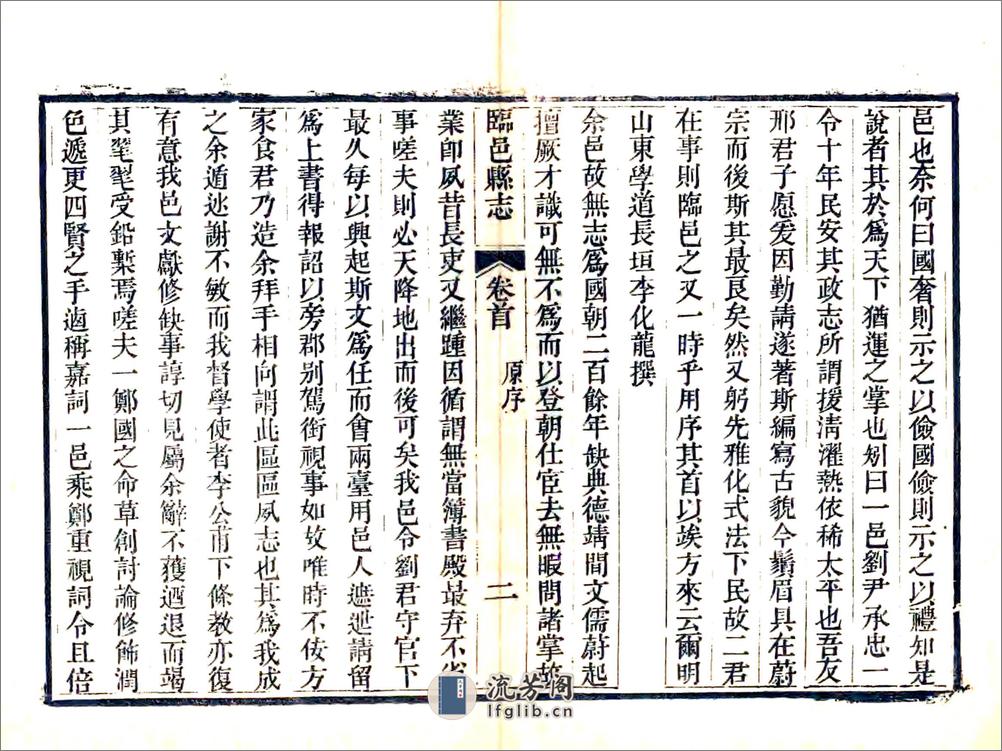 邑也奈何曰國奢則示之以儉國儉則示之以禮知是
說者其於為天下猶運之掌也矧曰一邑劉尹承忠一
令十年民安其政志所謂援清濯熱依稀太平也吾友
邢君子愿爰因勤請遂著斯編寫古貌今鬚眉具在蔚
宗而後斯其最良矣然又躬先雅化式法下民故二君
在事則臨邑之又一時乎用序其首以竢方來云爾明
山東學道長垣李化龍撰
余邑故無志為國朝二百餘年缺典德靖間文儒蔚起
擅厥才識可無不為而以登朝仕宦去無暇問諸掌故
臨邑縣志 卷首 原序 二
業即夙昔長吏又繼踵因循謂無當簿書殿最弃不省
事嗟夫則必天降地出而後可矣我邑令劉君守官下
最久每以興起斯文為任而會兩臺用邑人遮遮請留
為上書得報詔以旁郡别駕銜視事如故唯時不佞方
家食君乃造余拜手相向謂此區區夙志也其為我成
之余遁逃謝不敏而我督學使者李公甫下條教亦復
有意我邑文獻修缺事諄切見屬余辭不獲迺退而竭
其毣毣受鉛槧焉嗟夫一鄭國之命草創討論修飾潤
色遞更四賢之手迺稱嘉詞一邑乘鄭重視詞令且倍
流芳阁
lfglib.cn